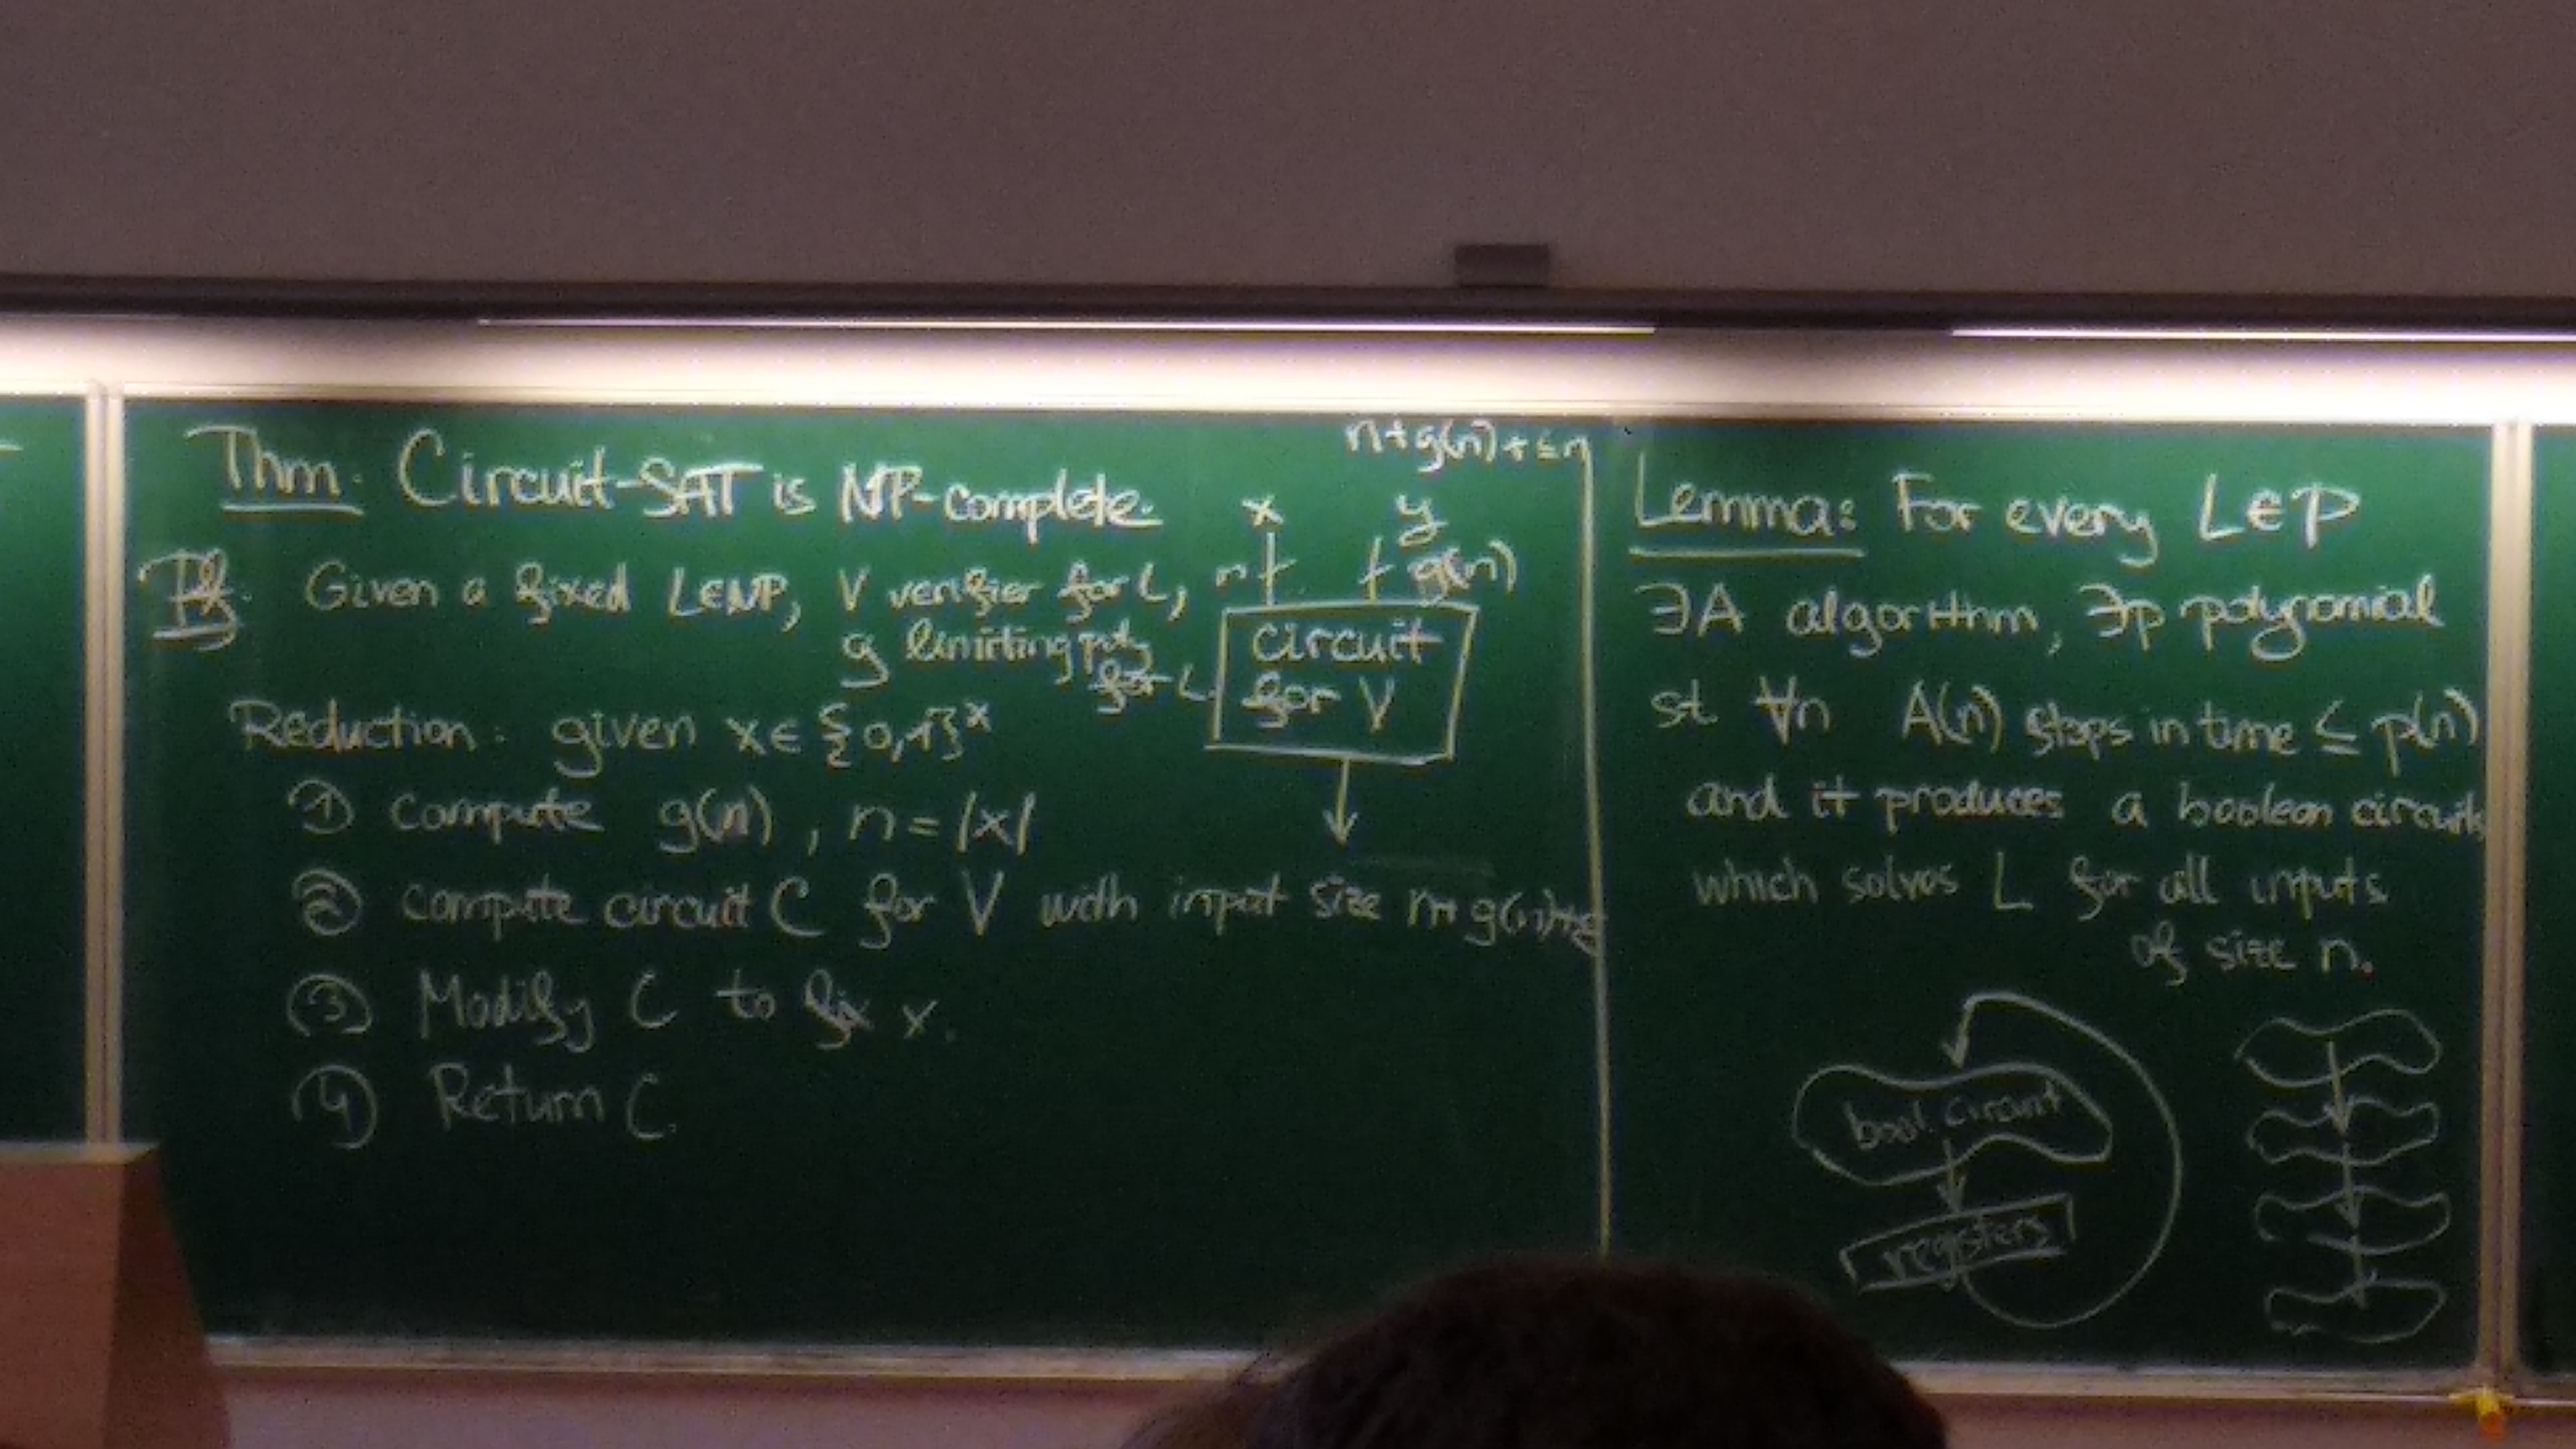 Thm: Circuit-SAT is NP-complete.
Pf: Given a fixed L∈NP, V verifier for L,
g limiting poly
for L.
Reduction: given x∈{0,1}*
① compute g(n), n=|x|
② compute circuit C for V with input size n+g(n)+
③ Modify C to fix x.
④ Return C.
n+g(n)+≤n
x y
n g(n)
circuit
for V
Lemma: For every L∈P
∃A algorithm, ∃p polynomial
st ∀n A(n) stops in time ≤ p(n)
and it produces a boolean circuit
which solves L for all inputs
of size n.
bool. circuit
registers